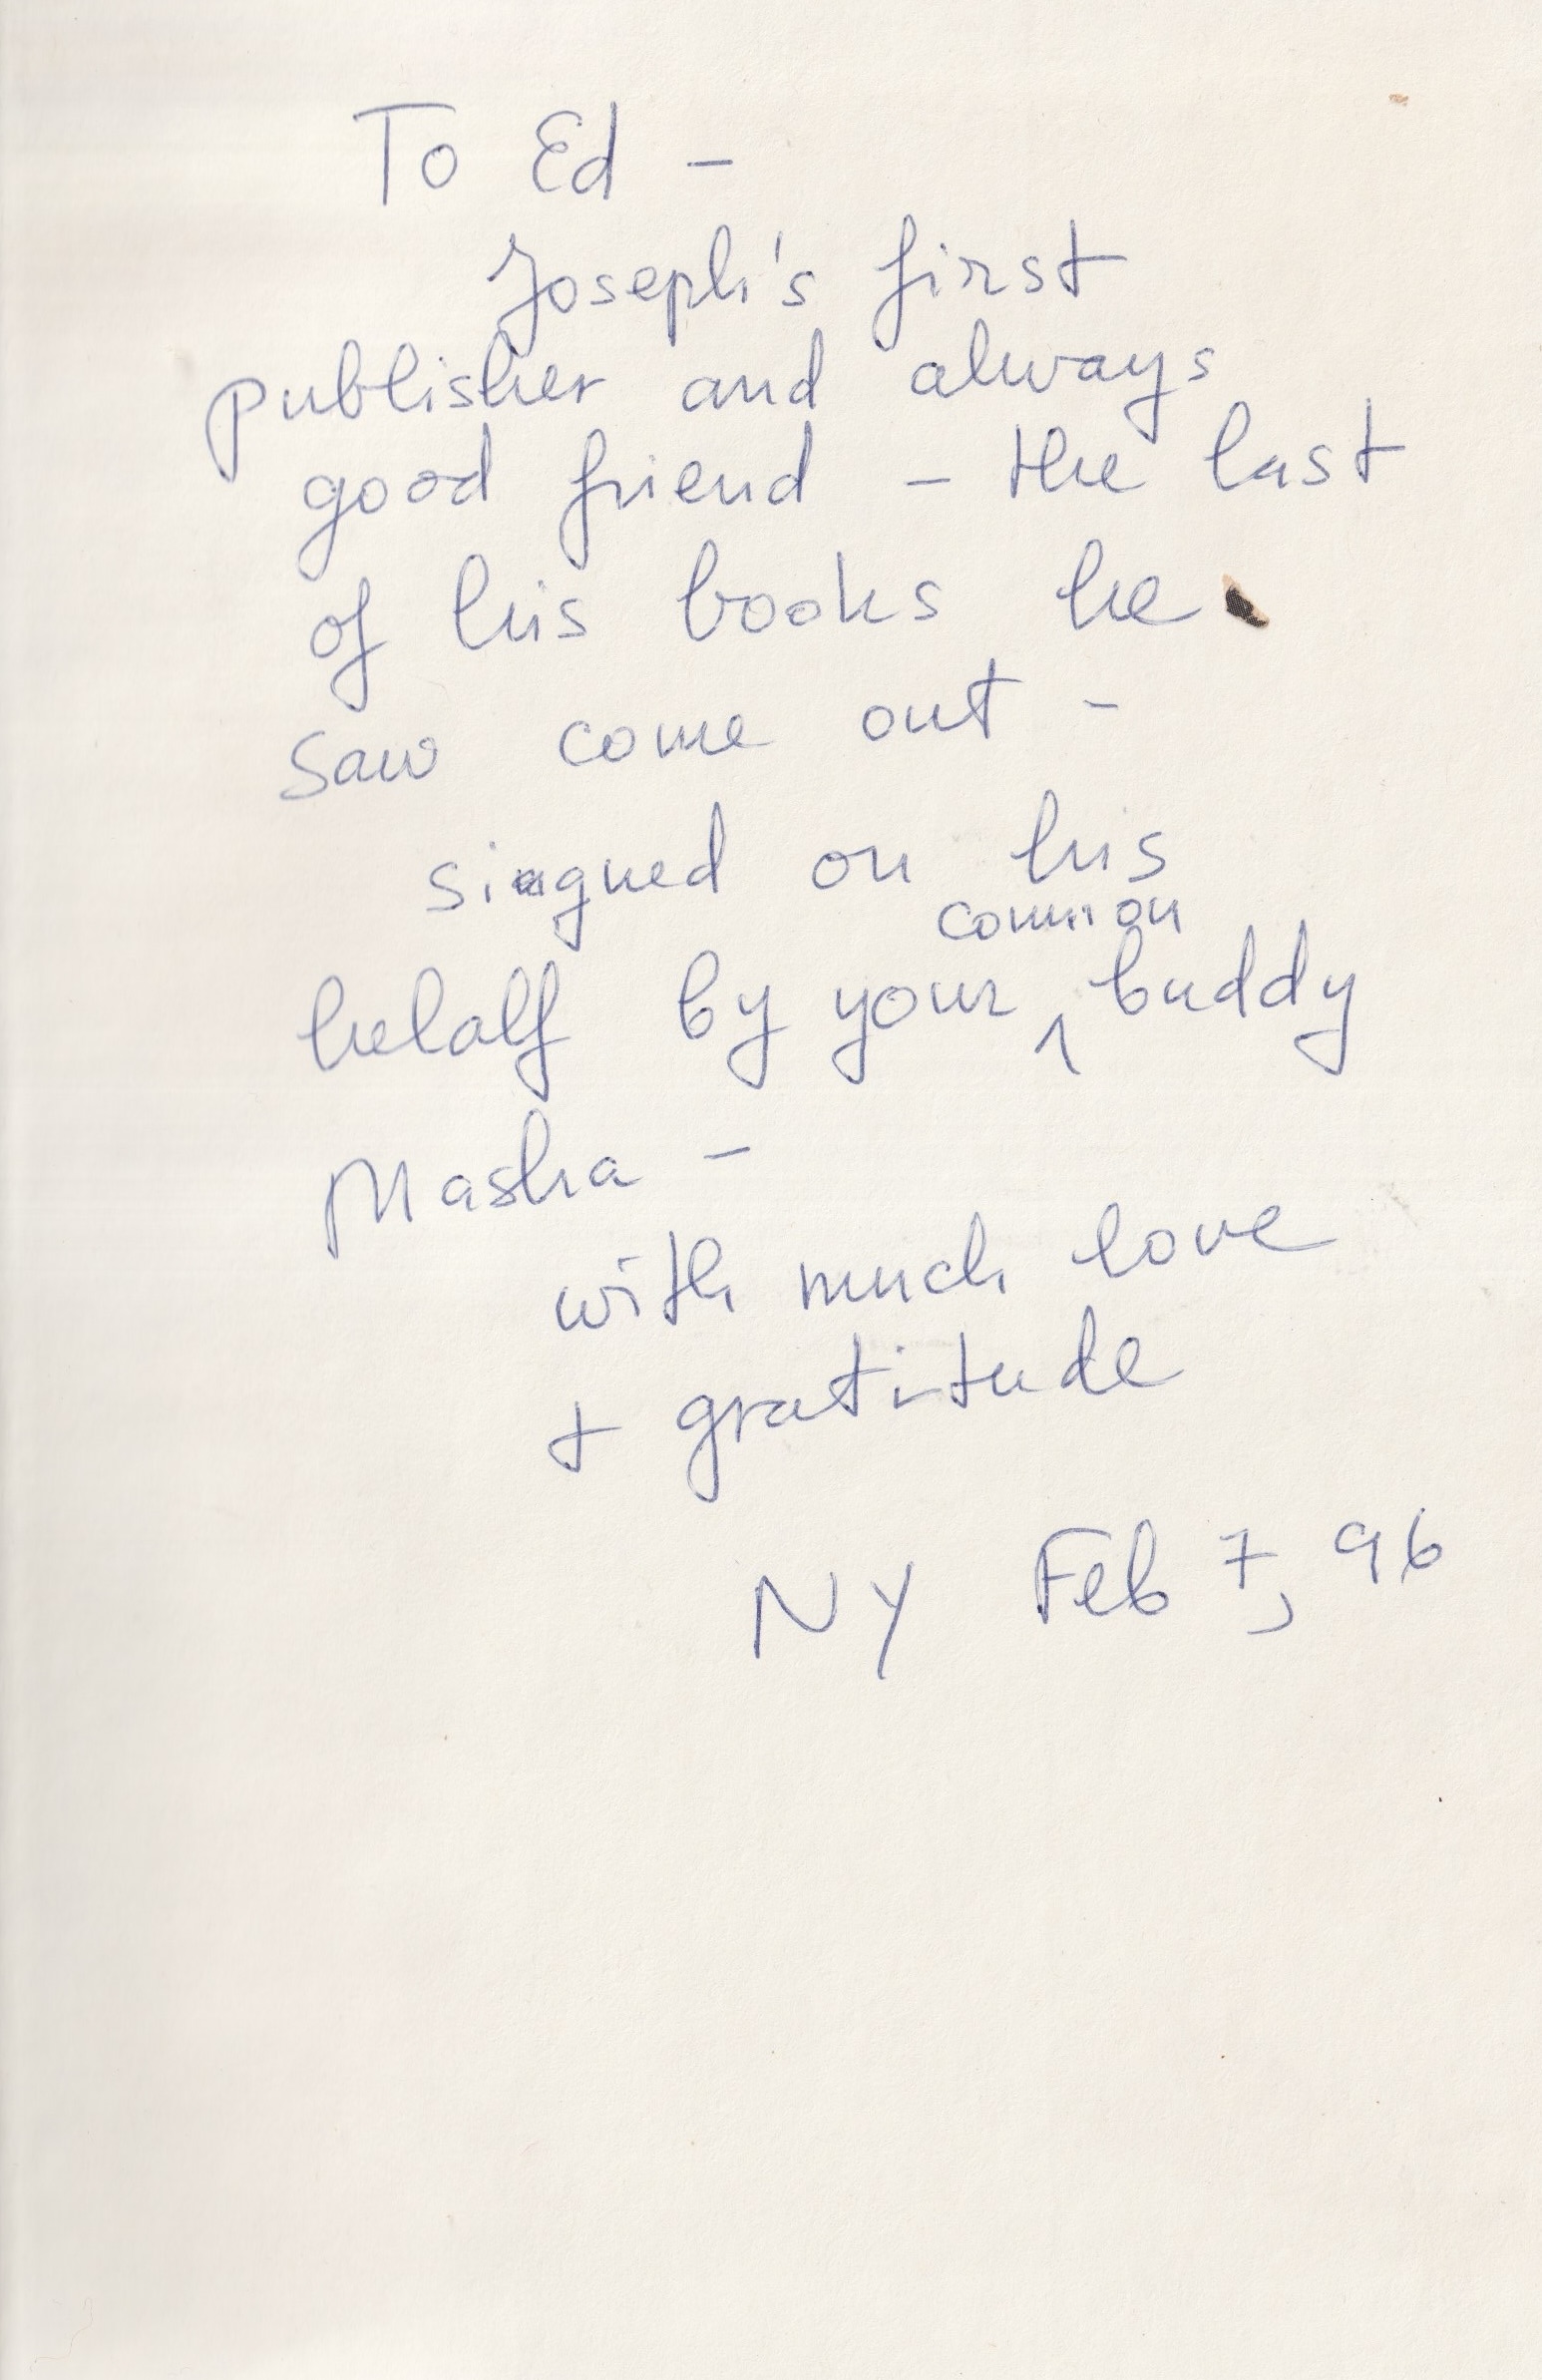 To Ed –
Joseph's first
publisher and always
good friend – the last
of his books he
saw come out –
signed on his
common
behalf by your ^ buddy
Masha –
with much love
+ gratitude
NY Feb 7, 96